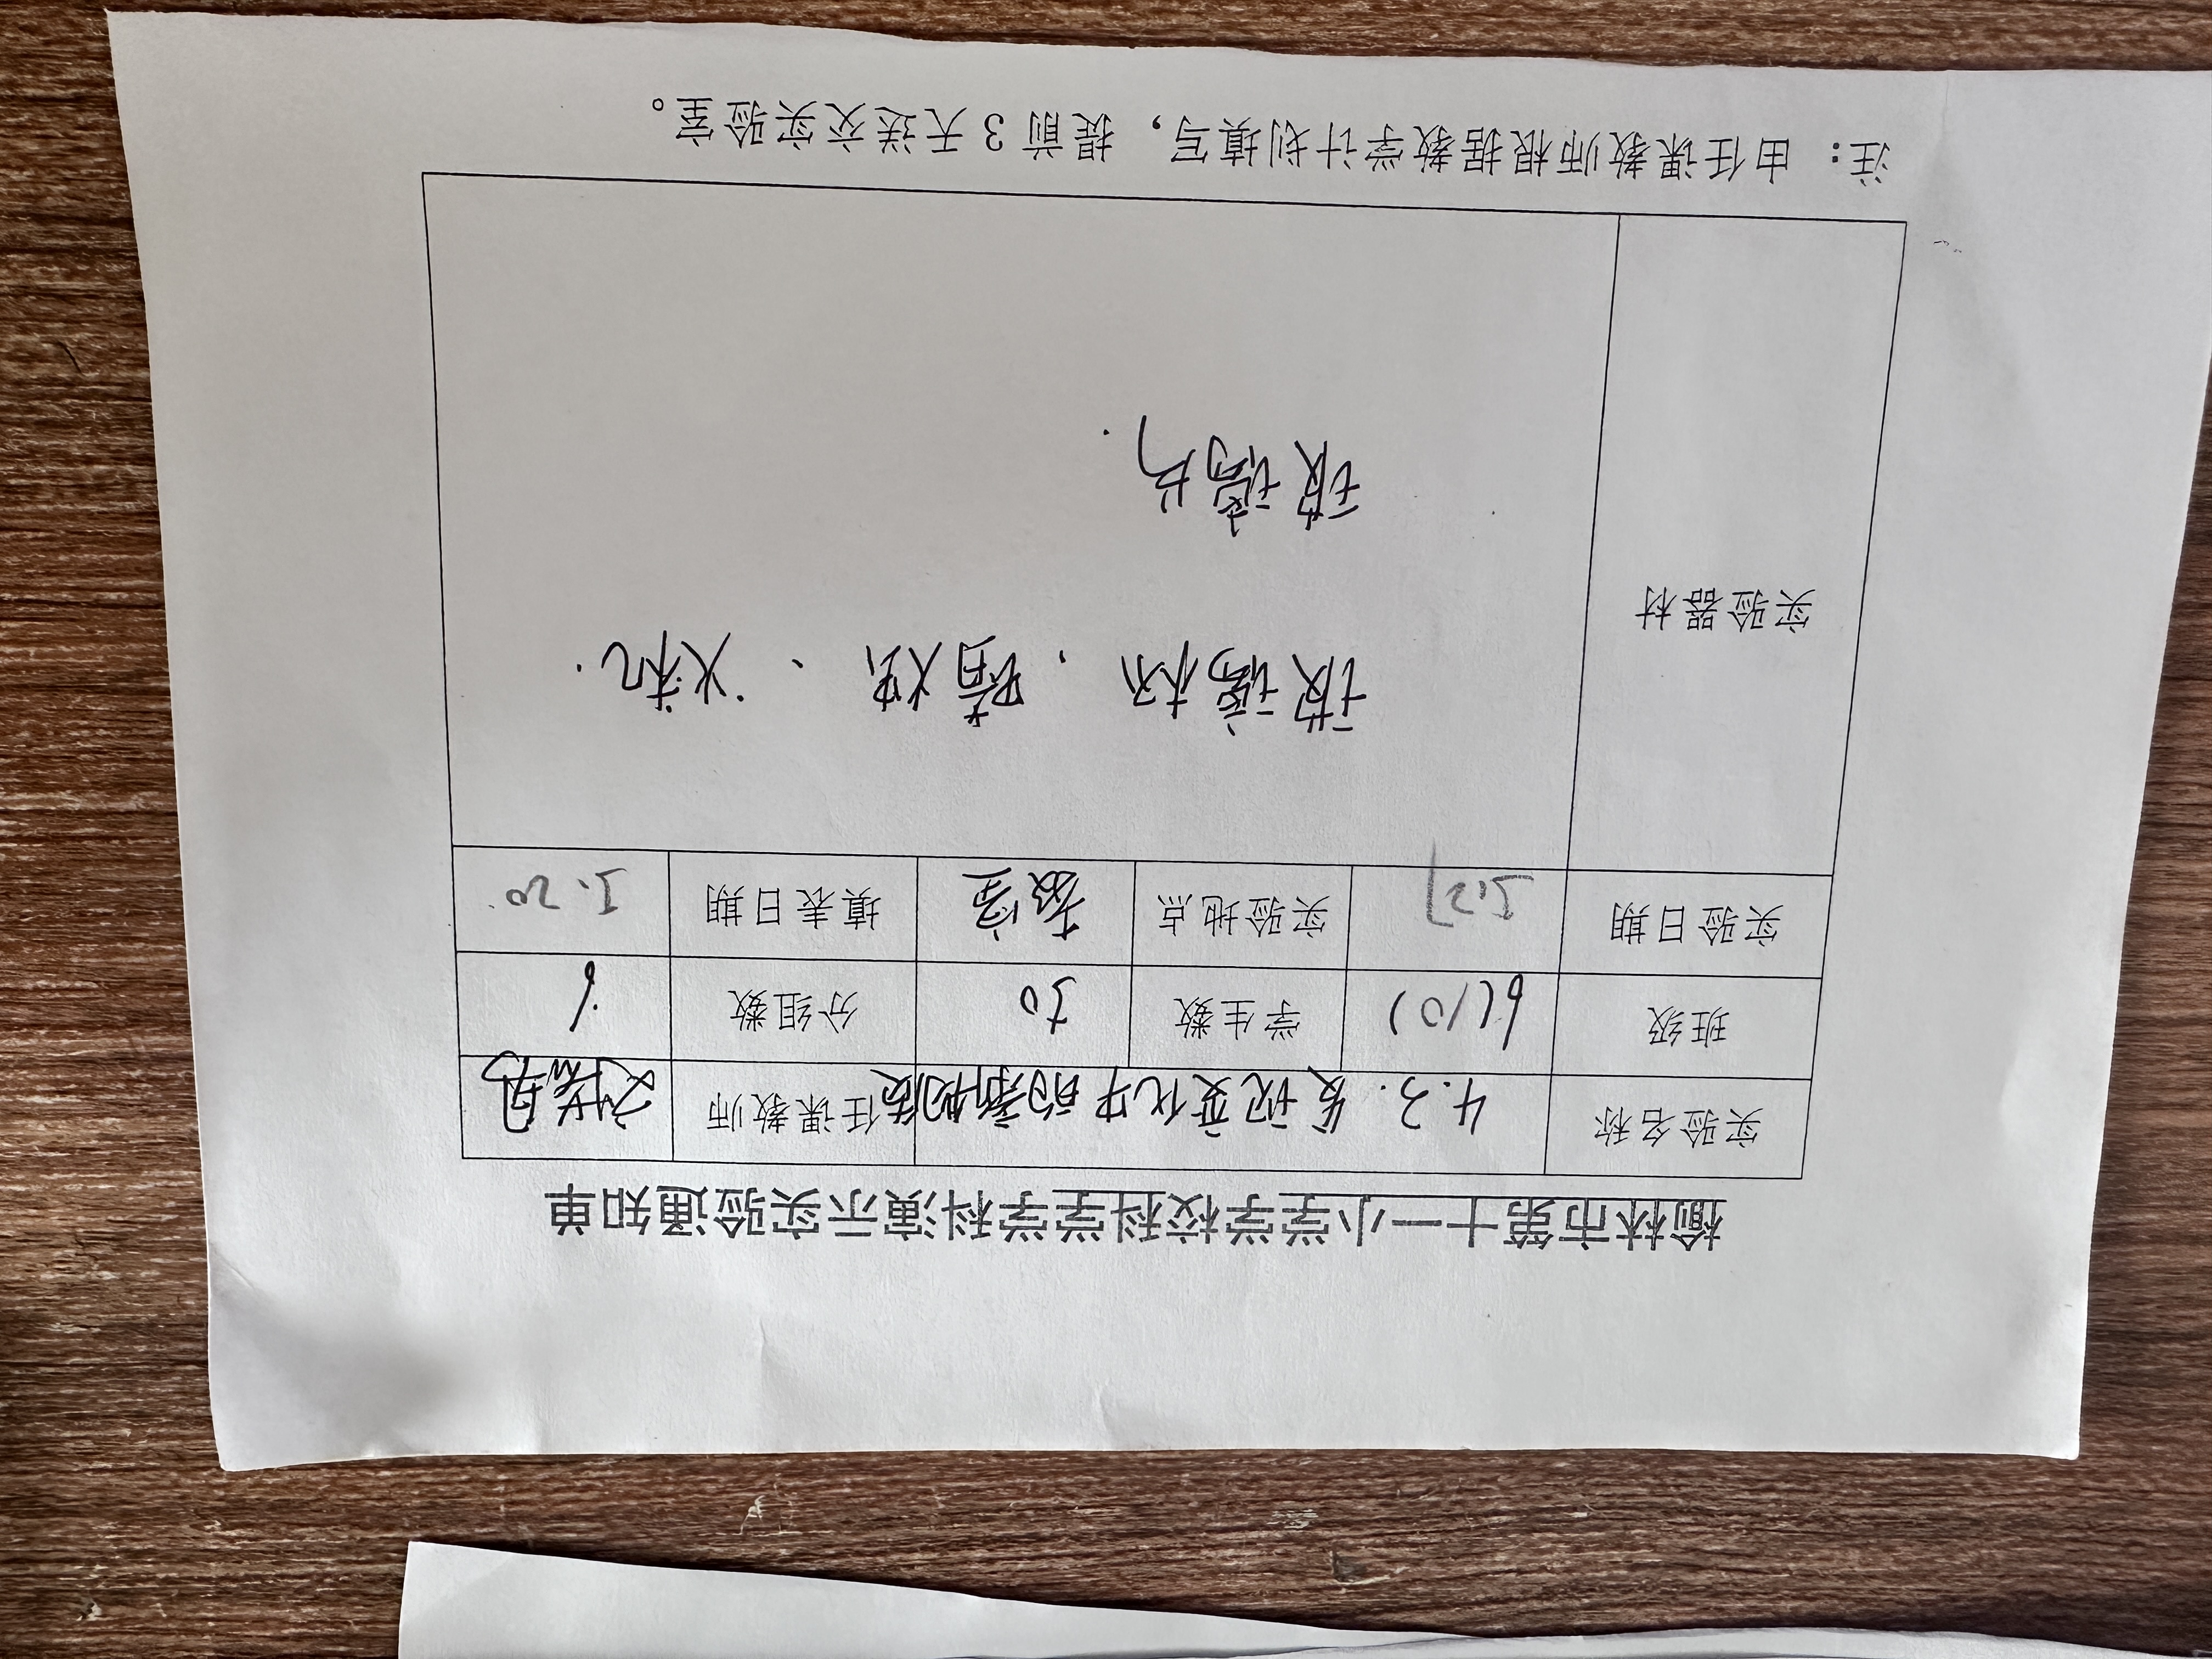 榆林市第十一小学学校科学学科演示实验通知单
实验名称 4.3.发现变化中的新物质 任课教师
班级 6(10) 学生数 50 分组数
实验日期 5.27 实验地点 教室 填表日期 5.20
实验器材
玻璃杯、蜡烛、火机.
玻璃片.
注：由任课教师根据教学计划填写，提前 3 天送交实验室。